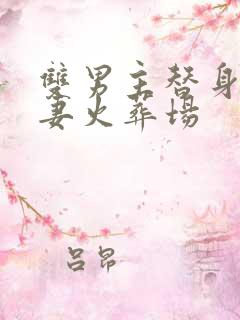 雙男主替身
妻火葬場
吕昂